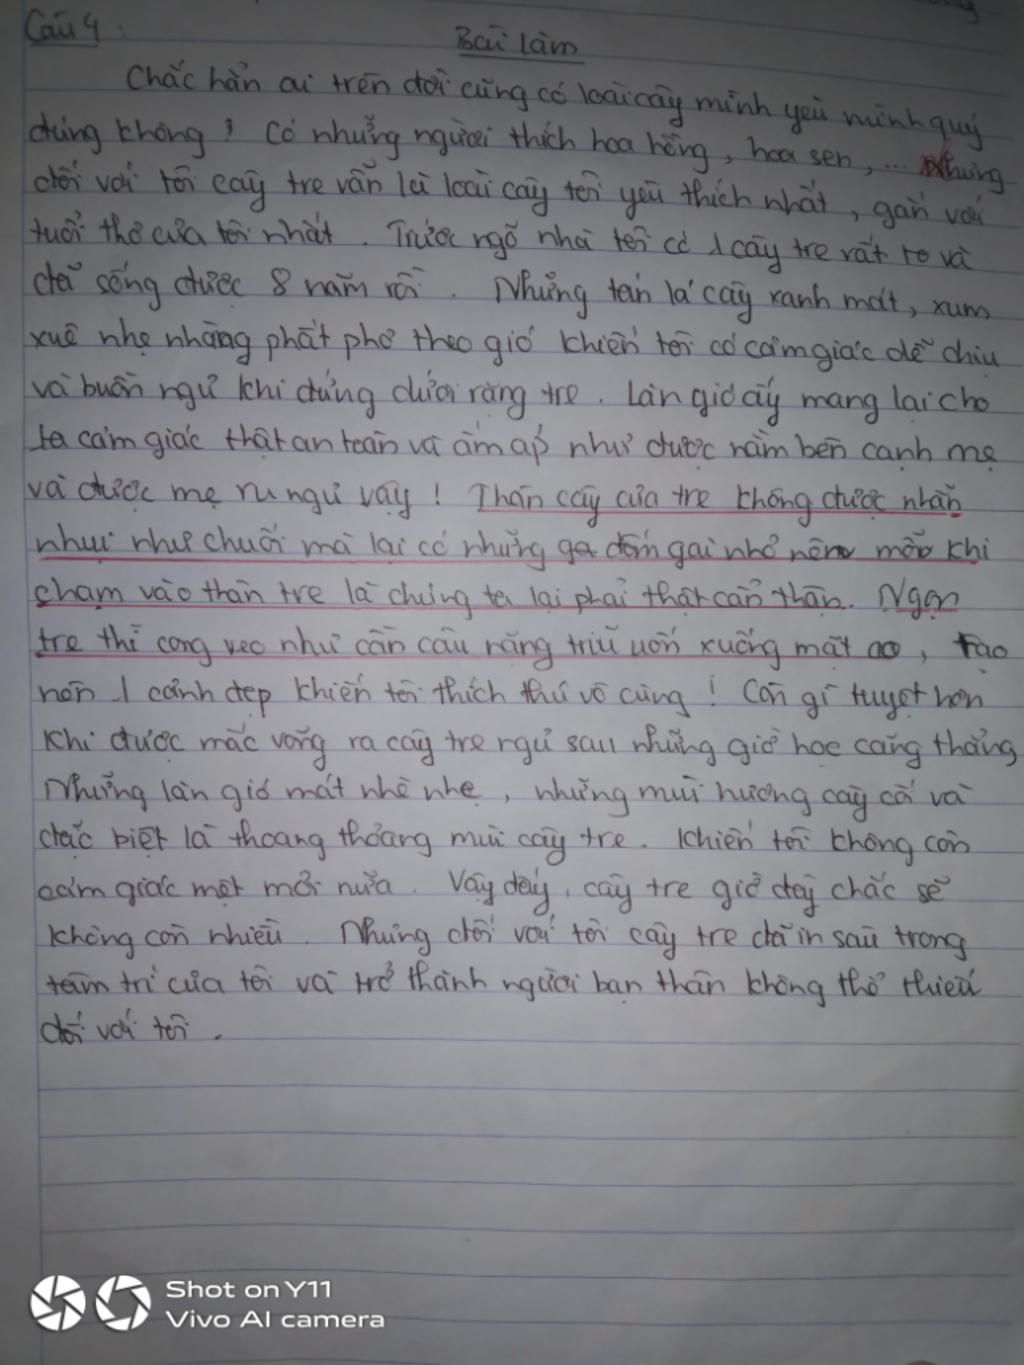 Câu 4 :
Bài làm
Chắc hẳn ai trên đời cũng có loài cây mình yêu mình quý
đúng không ? Có những người thích hoa hồng, hoa sen, ... Nhưng
đối với tôi cây tre vẫn là loài cây tôi yêu thích nhất, gắn với
tuổi thơ của tôi nhất. Trước ngõ nhà tôi có 1 cây tre rất to và
đã sống được 8 năm rồi. Những tán lá cây xanh mát, xum
xuê nhẹ nhàng phất phơ theo gió khiến tôi có cảm giác dễ chịu
và buồn ngủ khi đứng dưới rặng tre. Làn gió ấy mang lại cho
ta cảm giác thật an toàn và ấm áp như được nằm bên cạnh mẹ
và được mẹ ru ngủ vậy ! Thân cây của tre không được nhẵn
nhụi như chuối mà lại có những đốm gai nhỏ nên mỗi khi
chạm vào thân tre là chúng ta lại phải thật cẩn thận. Ngọn
tre thì cong veo như cần câu nặng trĩu uốn xuống mặt ao, tạo
nên 1 cảnh đẹp khiến tôi thích thú vô cùng ! Còn gì tuyệt hơn
khi được mắc võng ra cây tre ngủ sau những giờ học căng thẳng
Những làn gió mát nhè nhẹ, những mùi hương cây cối và
đặc biệt là thoang thoảng mùi cây tre. Khiến tôi không còn
cảm giác mệt mỏi nữa. Vậy đấy, cây tre giờ đây chắc sẽ
không còn nhiều. Nhưng đối với tôi cây tre đã in sâu trong
tâm trí của tôi và trở thành người bạn thân không thể thiếu
đối với tôi.
Shot on Y11
Vivo AI camera